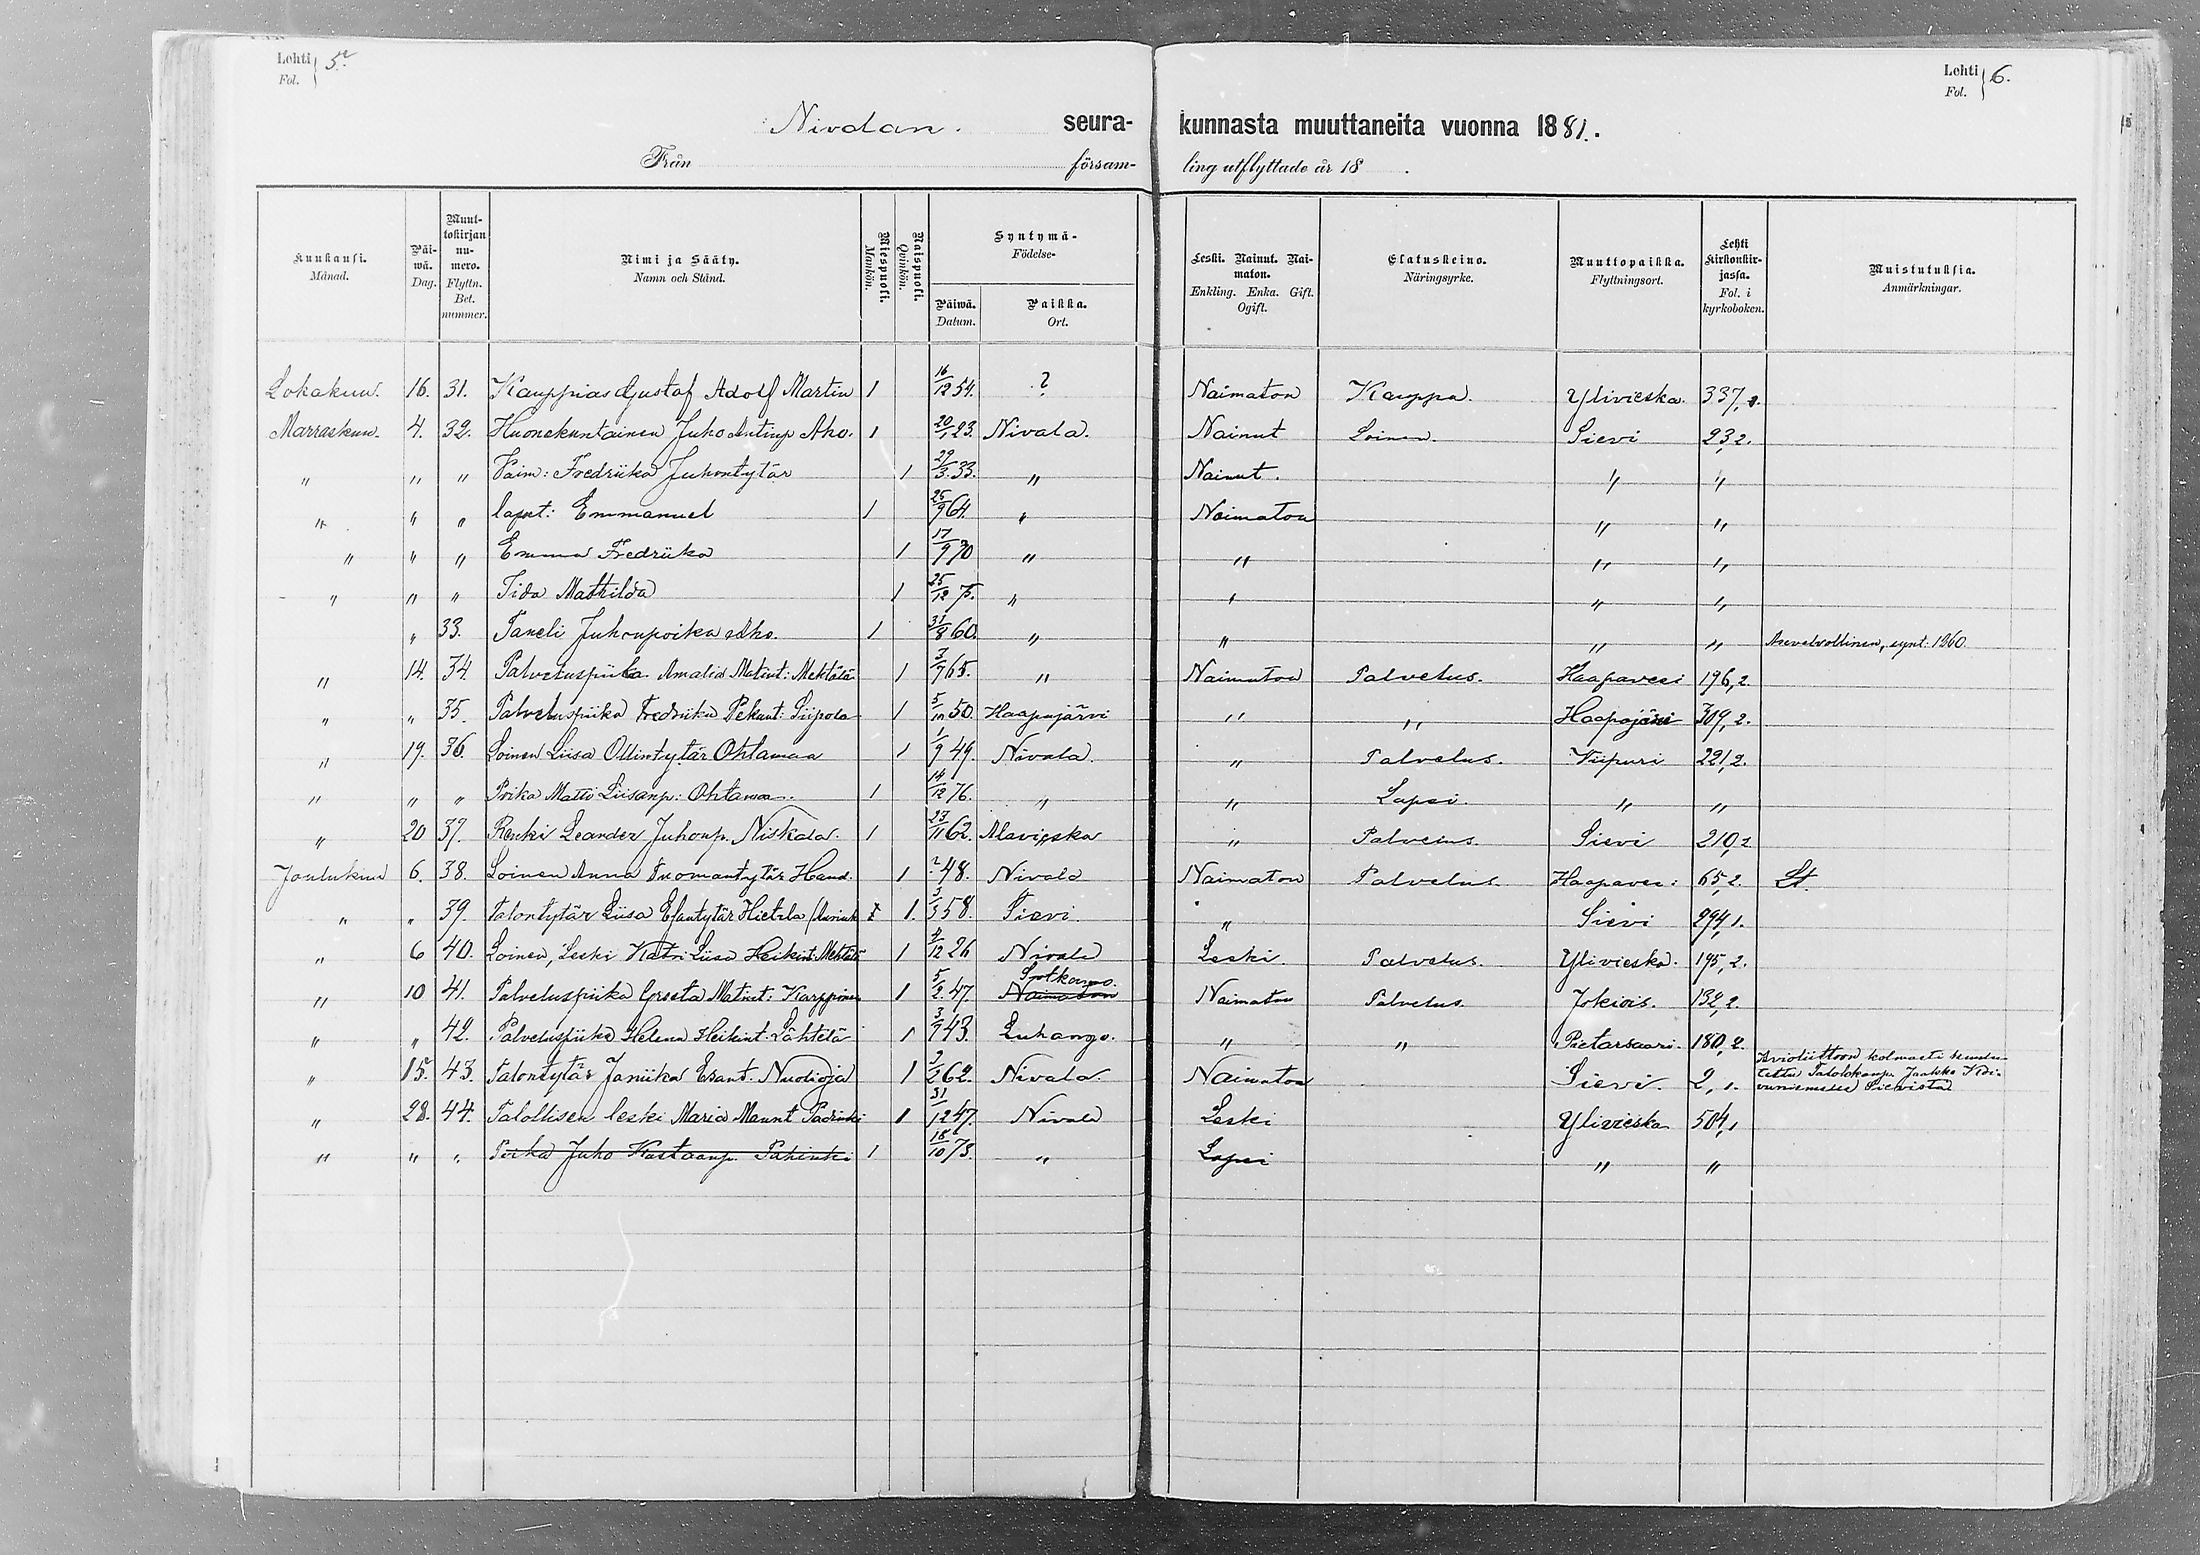 Lehti Fol. 5.
Lehti Fol. 6.
Nivalan. seurakunnasta muuttaneita vuonna 1881.
Från församling utflyttade år 18 .
Kuukausi. Månad. | Päiwä. Dag. | Muuttokirjan numero. Flyttn. Bet. nummer. | Nimi ja Sääty. Namn och Stånd. | Miespuoli. Mankön. | Naispuoli. Qvinkön. | Syntymä- Födelse- | Päiwä. Datum. | Paikka. Ort. | Leski. Nainut. Naimaton. Enkling. Enka. Gift. Ogift. | Elatuskeino. Näringsyrke. | Muuttopaikka. Flyttningsort. | Lehti kirkonkirjassa. Fol. i kyrkoboken. | Muistutuksia. Anmärkningar.
Lokakuu. 16. 31. Kauppias Gustaf Adolf Martin 1 16/12 54. ? Naimaton Kauppa. Ylivieska. 337,
Marraskuu. 4. 32. Huonekuntainen Juho Antinp Aho. 1 20/1 23. Nivala. Nainut Loinen. Sievi 23,2.
" " " Vaim: Fredriika Juhontytär 1 29/3 33. " Nainut. " "
" " " lapset: Emmanuel 1 25/9 64. " Naimaton " "
" " " Emma Fredriika 1 17/9 70 " " " "
" " " Iida Mathilda 1 25/12 75. " " " "
" 33. Taneli Juhonpoika Aho. 1 31/8 60. " " " " Asevelvollinen, synt: 1860.
" 14. 34. Palveluspiika Amalia Matint: Mehtälä 1 3/9 65. " Naimaton Palvelus. Haapavesi 196,2.
" " 35. Palveluspiika Fredriika Pekant: Siipola 1 5/10 50. Haapajärvi " " Haapajärvi 309,2.
" 19. 36. Loinen Liisa Ollintytär Ohtamaa 1 1/9 49. Nivala. " Palvelus. Viipuri 221,2.
" " " Poika Matti Liisanp: Ohtamaa. 1 14/12 76. " " Lapsi. " "
" 20 37. Renki Leander Juhonp. Niskala. 1 23/11 62. Alavieska " Palvelus. Sievi 210,2
Joulukuu 6. 38. Loinen Anna Tuomantytär Haud. 1 ? 48. Nivala Naimaton Palvelus. Haapaves: 65,2. Lt.
" " 39. Talontytär Liisa Esantytär Hietala 1. 3/3 58. Sievi. " Sievi 294,1.
" 6 40. Loinen, Leski Katri Liisa Heikint: Mehtälä 1 4/12 26 Nivala Leski. Palvelus. Ylivieska. 195,2.
" 10 41. Palveluspiika Greeta Matint: Karppinen 1 5/2 47. Sotkamo. Naimaton Naimaton Palvelus. Jokiois. 132,2.
" " 42. Palveluspiika Helena Heikint. Lähtelä 1 3/9 43. Luhango. " " Pietarsaari. 180,2.
" 15. 43. Talontytär Janiika Esant. Nuolioja 1 2/2 62. Nivala. Naimaton Sievi. 2,1. Avioliittoon kolmasti kuulutettu Talolokanp. Jaakko
Sievistä
" 28. 44. Talollisen leski Maria Maunt 1 31/12 47. Nivala Leski Ylivieska 504,1
" " " Poika Juho Kustaanp. Pahinki 1 18/10 73. " Lapsi " "